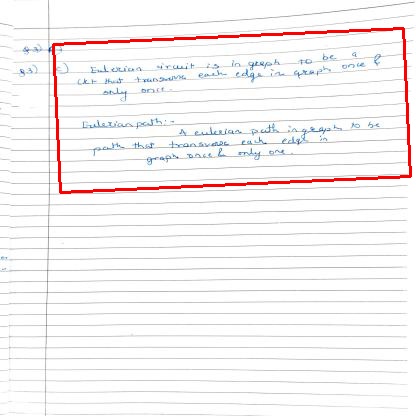 Q.3)
Q.3) C) Eulerian circuit is in graph to be a
Ckt that transverse each edge in graph once &
only once.
Eulerian path:-
A eulerian path in graph to be
path that transverse each edge in
graph once & only one.